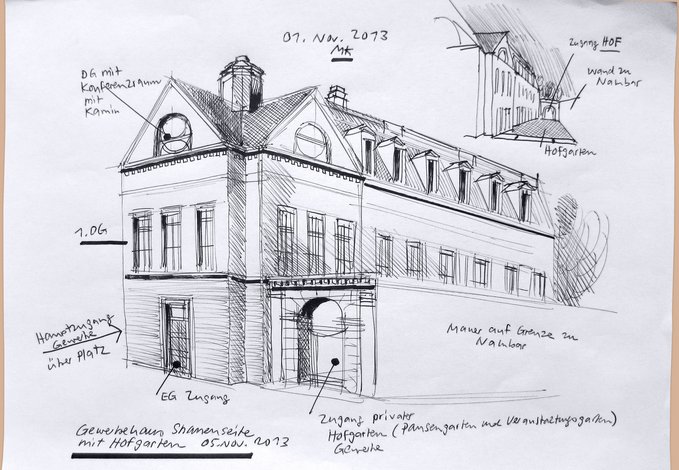 01. Nov. 2013
MK
Zugang HOF
Wand zu
Nachbar
Hofgarten
DG mit
Konferenzraum
mit
Kamin
1.OG
Hauptzugang
Gewerbe
über Platz
EG Zugang
Mauer auf Grenze zu
Nachbar
Zugang privater
Hofgarten (Pausengarten und Veranstaltungsgarten)
Gewerbe
Gewerbehaus Strassenseite
mit Hofgarten 05.Nov. 2013